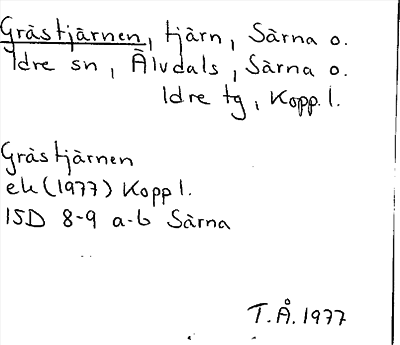 Gråstjärnen, tjärn, Särna o.
Idre sn, Älvdals, Särna o.
Idre tg, Kopp. l.
Gråstjärnen
ek (1977) Kopp l.
15D 8-9 a-b Särna
T.Å. 1977